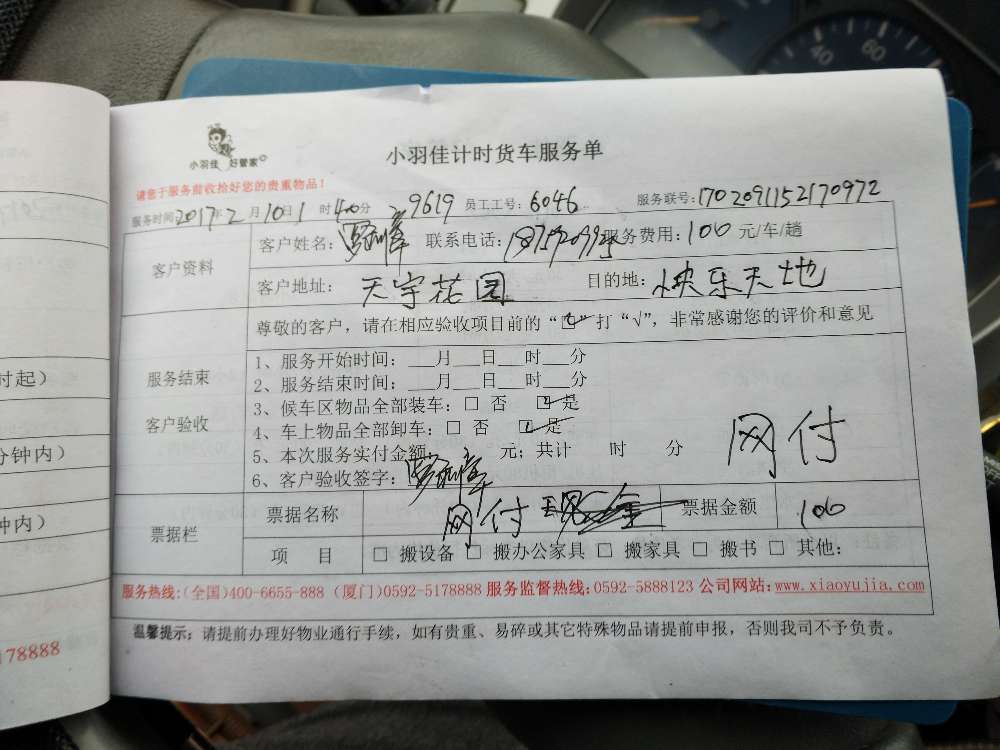 小羽佳 好管家
小羽佳计时货车服务单
请您于服务前收拾好您的贵重物品!
服务时间2017年2月10日1时40分 29619 员工工号:6046 服务联号:1702091152170972
客户资料
客户姓名: 联系电话: 服务费用:100元/车/趟
客户地址: 天宇花园 目的地:快乐天地
尊敬的客户,请在相应验收项目前的“☑”打“√”,非常感谢您的评价和意见
服务结束
客户验收
1、服务开始时间:___月___日___时___分
2、服务结束时间:___月___日___时___分
3、候车区物品全部装车:□ 否 ☑ 是
4、车上物品全部卸车:□ 否 ☑ 是
5、本次服务实付金额: 元;共计 时 分
网付
6、客户验收签字:
票据栏
票据名称 网付 票据金额 100
项 目 □ 搬设备 □ 搬办公家具 □ 搬家具 □ 搬书 □ 其他:
服务热线:(全国)400-6655-888 (厦门)0592-5178888 服务监督热线:0592-5888123 公司网站:www.xiaoyujia.com
温馨提示:请提前办理好物业通行手续,如有贵重、易碎或其它特殊物品请提前申报,否则我司不予负责。
时起)
分钟内)
钟内)
178888
40
60